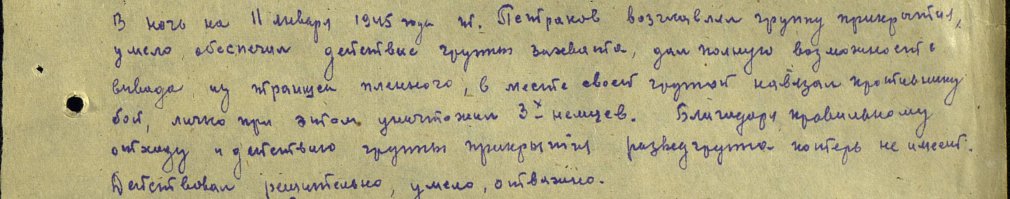 В ночь на 11 января 1945 года т. Петраков возглавлял группу прикрытия,
умело обеспечил действие группы захвата, дал полную возможность
вывода из траншеи пленного, в месте своей группой навязал противнику
бой, лично при этом уничтожил 3х немцев. Благодаря правильному
отходу и действию группы прикрытия разведгруппа потерь не имеет.
Действовал решительно, умело, отважно.